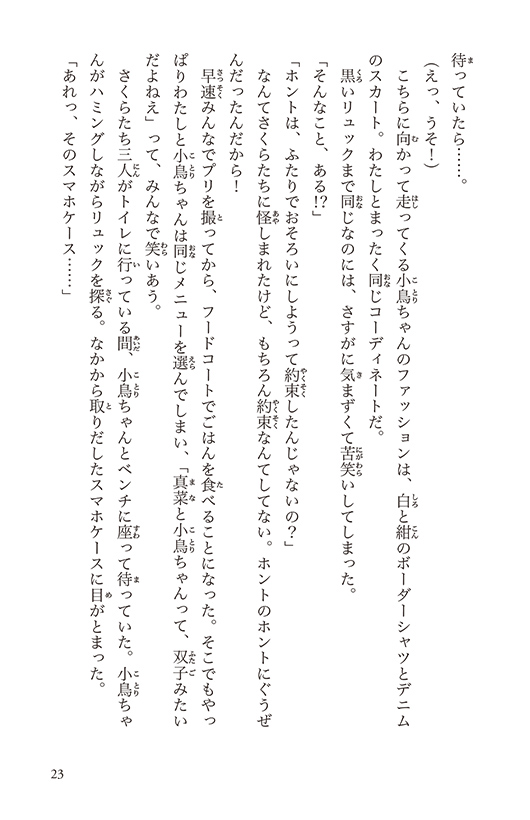 待っていたら……。
（えっ、うそ！）
　こちらに向かって走ってくる小鳥ちゃんのファッションは、白と紺のボーダーシャツとデニム
のスカート。わたしとまったく同じコーディネートだ。
　黒いリュックまで同じなのには、さすがに気まずくて苦笑いしてしまった。
「そんなこと、ある!?」
「ホントは、ふたりでおそろいにしようって約束したんじゃないの？」
　なんてさくらたちに怪しまれたけど、もちろん約束なんてしてない。ホントのホントにぐうぜ
んだったんだから！
　早速みんなでプリを撮ってから、フードコートでごはんを食べることになった。そこでもやっ
ぱりわたしと小鳥ちゃんは同じメニューを選んでしまい、「真菜と小鳥ちゃんって、双子みたい
だよねえ」って、みんなで笑いあう。
　さくらたち三人がトイレに行っている間、小鳥ちゃんとベンチに座って待っていた。小鳥ちゃ
んがハミングしながらリュックを探る。なかから取りだしたスマホケースに目がとまった。
「あれっ、そのスマホケース……」
23